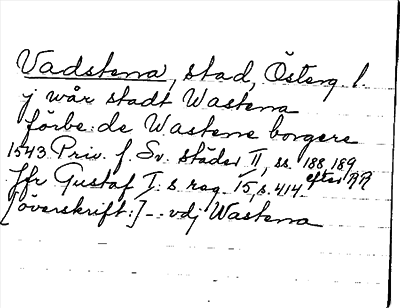 Vadstena, stad, Österg. l.
j wår stadt Wastena
förbe:de Wastene borgere
1543 Priv. f. Sv. städer II, ss. 188, 189
Jfr Gustaf I:s reg. 15, s. 414. efter RR
[överskrift:] - - vdj Wastena